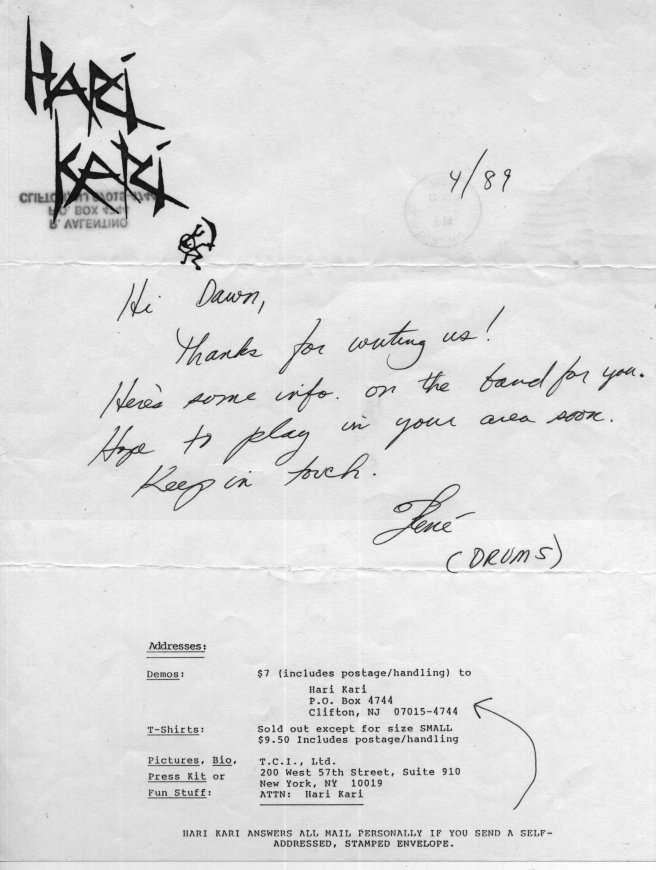 HARI
KARI
R. VALENTINO
P.O. BOX 4744
CLIFTON, NJ 07015-4744
4/89
Hi Dawn,
Thanks for writing us!
Here's some info. on the band for you.
Hope to play in your area soon.
Keep in touch.
René
(DRUMS)
Addresses:
Demos: $7 (includes postage/handling) to
Hari Kari
P.O. Box 4744
Clifton, NJ 07015-4744
T-Shirts: Sold out except for size SMALL
$9.50 Includes postage/handling
Pictures, Bio, T.C.I., Ltd.
Press Kit or 200 West 57th Street, Suite 910
New York, NY 10019
Fun Stuff: ATTN: Hari Kari
HARI KARI ANSWERS ALL MAIL PERSONALLY IF YOU SEND A SELF-
ADDRESSED, STAMPED ENVELOPE.